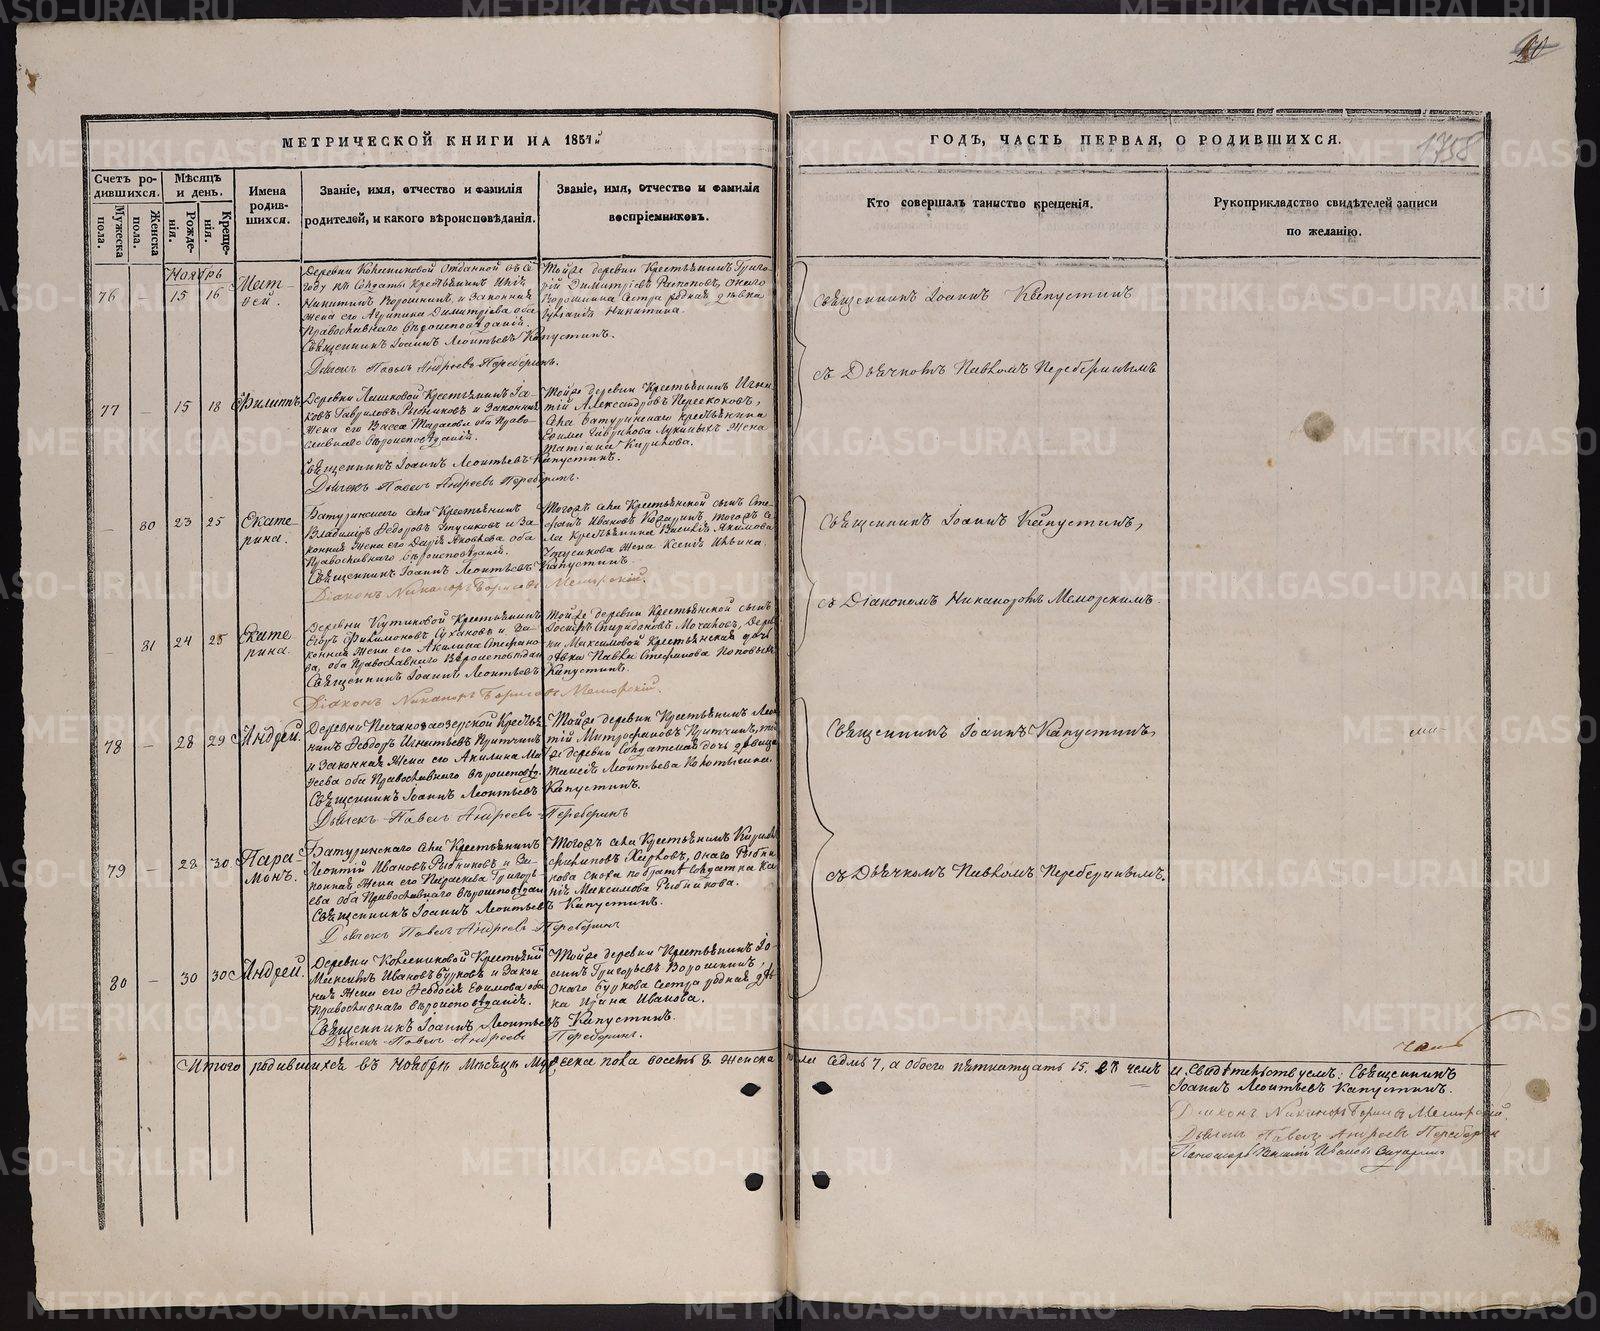 МЕТРИЧЕСКОЙ КНИГИ НА 1851й
ГОДЪ, ЧАСТЬ ПЕРВАЯ, О РОДИВШИХСЯ.
1758
Счетъ родившихся.
Мужеска пола.
Женска пола.
Мѣсяцъ и день.
Рожденія.
Крещенія.
Имена родившихся.
Званіе, имя, отчество и фамилія
родителей, и какого вѣроисповѣданія.
Званіе, имя, отчество и фамилія
воспріемниковъ.
Кто совершалъ таинство крещенія.
Рукоприкладство свидѣтелей записи
по желанію.
Ноябрь
76 – 15 16
Матѳей.
Никитинъ Ворошнинъ и Законная
жена его Агрипина Димитріева оба
Православнаго вѣроисповѣданія.
Священникъ Іоаннъ Леонтьевъ Капустинъ.
Дьячекъ Павелъ Андреевъ Переберинъ.
Тойже деревни Крестьянинъ Григо-
рій Димитріевъ
Ворошнина Сестра родная дѣвка
Никитина.
Священникъ Іоаннъ Капустинъ
съ Дьячкомъ Павломъ Переберинымъ
77 – 15 18
Филиппъ
ковъ Гавриловъ Рыбниковъ и Законная
жена его Васса Тарасова оба Право-
славнаго вѣроисповѣданія.
Священникъ Іоаннъ Леонтьевъ Капустинъ.
Дьячекъ Павелъ Андреевъ Переберинъ.
Тойже деревни Крестьянинъ Игна-
тій Александровъ
Села Батуринскаго крестьянина
жена
Татіана Карпова.
– 80 23 25
Екате-
рина.
Батуринскаго села Крестьянинъ
Владиміръ Ѳедоровъ и За-
конная жена его Дарія Яковлева оба
Православнаго вѣроисповѣданія.
Священникъ Іоаннъ Леонтьевъ Капустинъ.
Діаконъ Никаноръ Борисовъ Меморскій.
Тогожъ села Крестьянской сынъ Сте-
фанъ Ивановъ тогожъ се-
ла Крестьянина Василія Якимова
жена Ксенія Ильина.
Священникъ Іоаннъ Капустинъ,
съ Діакономъ Никаноромъ Меморскимъ
– 81 24 25
Екате
рина.
Егоръ Филимоновъ Сухановъ и За-
конная жена его Акилина Стефано-
ва, оба Православнаго Вѣроисповѣдан.
Священникъ Іоаннъ Леонтьевъ Капустинъ.
Діаконъ Никаноръ Борисовъ Меморскій.
Тойже деревни Крестьянской сынъ
Іосифъ Спиридоновъ Дерев-
ни Максимовой Крестьянская дочь
дѣвка Павла Стефанова Поповыхъ
78 – 28 29
Андрей.
нинъ Ѳедоръ Игнатьевъ Притчинъ
и Законная жена его Акилина
оба Православнаго вѣроисповѣд.
Священникъ Іоаннъ Леонтьевъ Капустинъ.
Дьячекъ Павелъ Андреевъ Переберинъ
Тойже деревни Крестьянинъ Леон-
тій Митрофановъ Притчинъ, той
же деревни Солдатская дочь дѣвица
Леонтьева
Священникъ Іоаннъ Капустинъ,
79 – 28 30
Пара-
монъ.
Батуринскаго села Крестьянинъ
Леонтій Ивановъ Рыбниковъ и За-
конная жена его Параскева Григорь-
ева оба Православнаго вѣроисповѣдан
Священникъ Іоаннъ Леонтьевъ Капустинъ.
Дьячекъ Павелъ Андреевъ Переберинъ
Тогожъ села Крестьянинъ
Филиповъ онаго Рыбни-
кова сноха по братѣ Солдатка
Максимова Рыбникова.
съ Дьячкомъ Павломъ Переберинымъ.
80 – 30 30
Андрей.
Деревни Колесниковой Крестьянинъ
Ивановъ Бурковъ и Закон
ная жена его Ѳеодосія Ефимова оба
Православнаго вѣроисповѣданія.
Священникъ Іоаннъ Леонтьевъ Капустинъ.
Дьячекъ Павелъ Андреевъ Переберинъ.
Тойже деревни Крестьянинъ Іо-
Григорьевъ Ворошнинъ,
Онаго Буркова Сестра родная дѣв-
ка Ирина Иванова.
Итого родившихся въ Ноябрѣ Мѣсяцѣ Мужеска пола восемь 8 женска пола седмь 7, а обоего пятнатцать 15.
Свидѣтельствуемъ: Священникъ
Іоаннъ Леонтьевъ Капустинъ.
Діаконъ Никаноръ Борисовъ Меморскій.
Дьячекъ Павелъ Андреевъ Переберинъ
Пономарь
METRIKI.GASO-URAL.RU